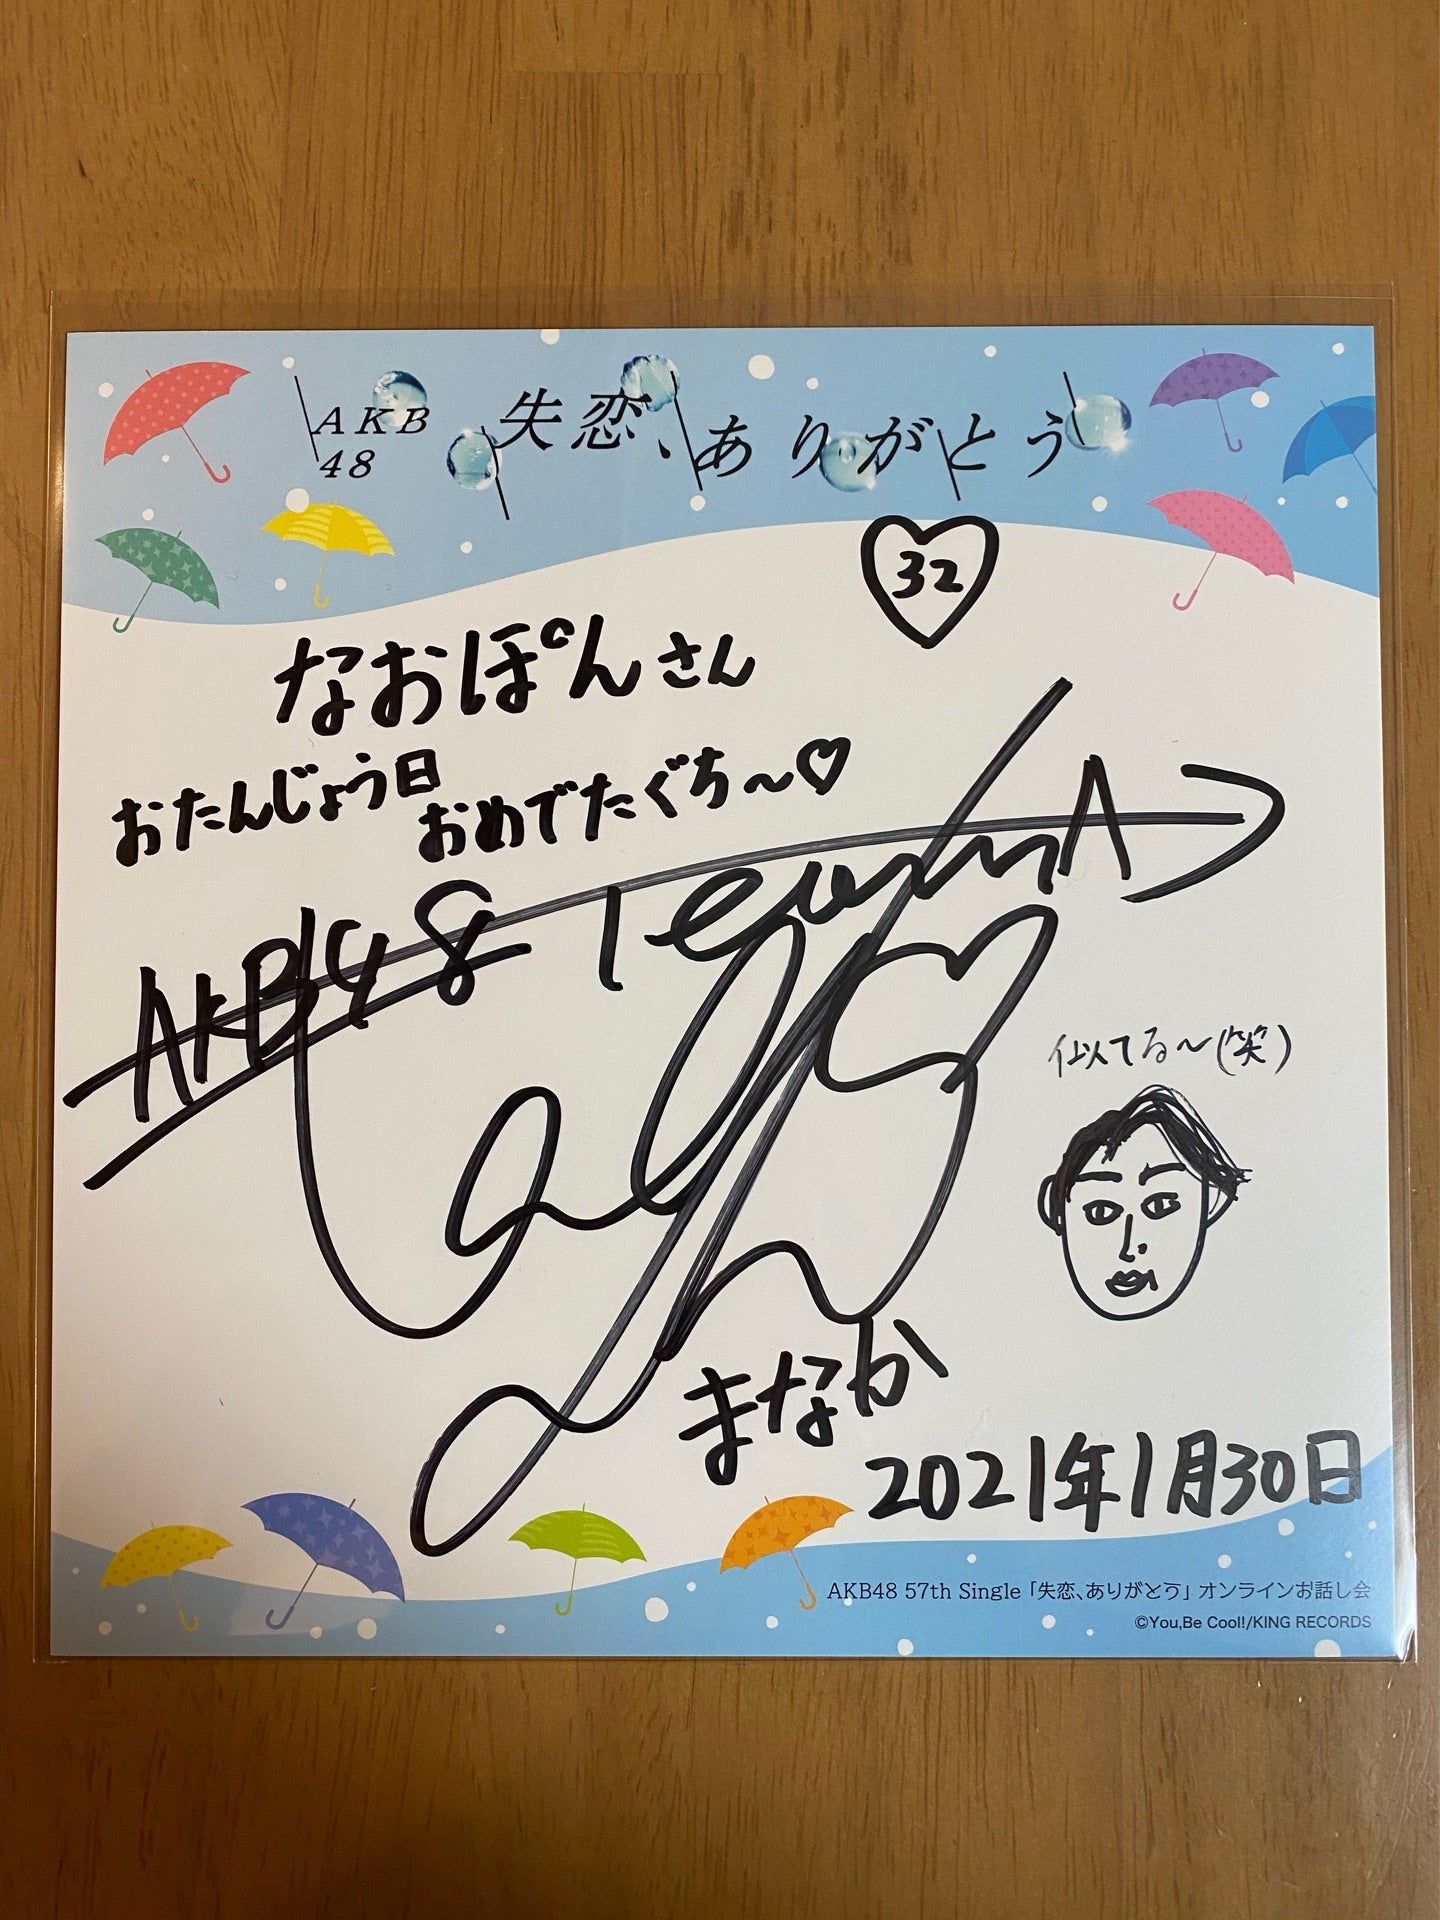 AKB
48
失恋、ありがとう
32
なおぽんさん
おたんじょう日
おめでたぐち〜♡
AKB48 TeamA
似てる〜(笑)
まなか
2021年1月30日
AKB48 57th Single「失恋、ありがとう」オンラインお話し会
©You,Be Cool!/KING RECORDS